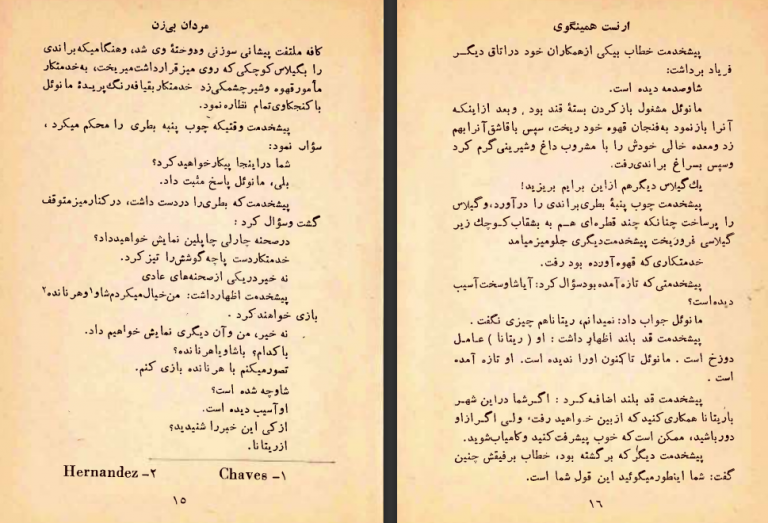 مردان بی‌زن
کافه ملتفت پیشانی سوزنی ودوختهٔ وی شد، وهنگامیکه براندی
را بگیلاس کوچکی که روی میز قرارداشت میریخت، به‌خدمتکار
مأمورقهوه وشیرچشمکی‌زد خدمتکار بقیافه رنگ‌پریدهٔ مانوئل
باکنجکاوی‌تمام نظاره نمود.
پیشخدمت وقتیکه چوب پنبه بطری را محکم میکرد ،
سؤال نمود:
شما دراینجا پیکارخواهید کرد؟
بلی، مانوئل پاسخ مثبت داد.
پیشخدمت که بطری‌را دردست داشت، در کنارمیز متوقف
گشت وسؤال کرد :
درصحنه چارلی چاپلین نمایش خواهیدداد؟
خدمتکاردست پاچه گوشش‌را تیز کرد.
نه خیر دریکی ازصحنه‌های عادی
پیشخدمت اظهارداشت: من‌خیال میکردم شاو۱ وهر نانده۲
بازی خواهند کرد.
نه خیر، من وآن دیگری نمایش خواهیم داد.
باکدام؟ باشاو یاهر نانده؟
تصورمیکنم با هر نانده بازی کنم.
شاوچه شده است؟
اوآسیب دیده است.
از کی این خبررا شنیدید؟
ازریتانا.
۱- Chaves ۲- Hernandez
۱۵
ارنست همینگوی
پیشخدمت خطاب بیکی ازهمکاران خود دراتاق دیگــر
فریاد برداشت:
شاوصدمه دیده است.
مانوئل مشغول باز کردن بستهٔ قند بود . وبعد ازاینکـه
آنرا بازنمود به‌فنجان قهوه خود ریخت، سپس باقاشق آنرابهم
زد ومعده خالی خودش را با مشروب داغ وشیرینی گرم کرد
وسپس بسراغ براندی‌رفت.
یك گیلاس دیگرهم ازاین برایم بریزید!
پیشخدمت چوب پنبهٔ بطری‌براندی را درآورد، وگیلاس
را پرساخت چنانکه چند قطره‌ای هــم به بشقاب کـوچك زیر
گیلاسی فروریخت پیشخدمت‌دیگری جلومیزمیامد
خدمتکاری که قهوه آورده بود رفت.
پیشخدمتی که تازه آمده بودسؤال کرد: آیاشاوسخت آسیب
دیده‌است؟
مانوئل جواب داد: نمیدانم، ریتاناهم چیزی نگفت .
پیشخدمت قد بلند اظهار داشت : او ( ریتانا ) عـامـل
دوزخ است . مانوئل تاکنون اورا ندیده است. او تازه آمده
است .
پیشخدمت قد بلند اضافه کـرد : اگـرشما دراین شهـر
باریتانا همکاری کنید که ازبین خـواهید رفت، ولـی اگـرازاو
دورباشید، ممکن است که خوب پیشرفت کنید وکامیاب‌شوید.
پیشخدمت دیگر که برگشته بود، خطاب برفیقش چنین
گفت: شما اینطورمیگوئید این قول شما است.
۱۶